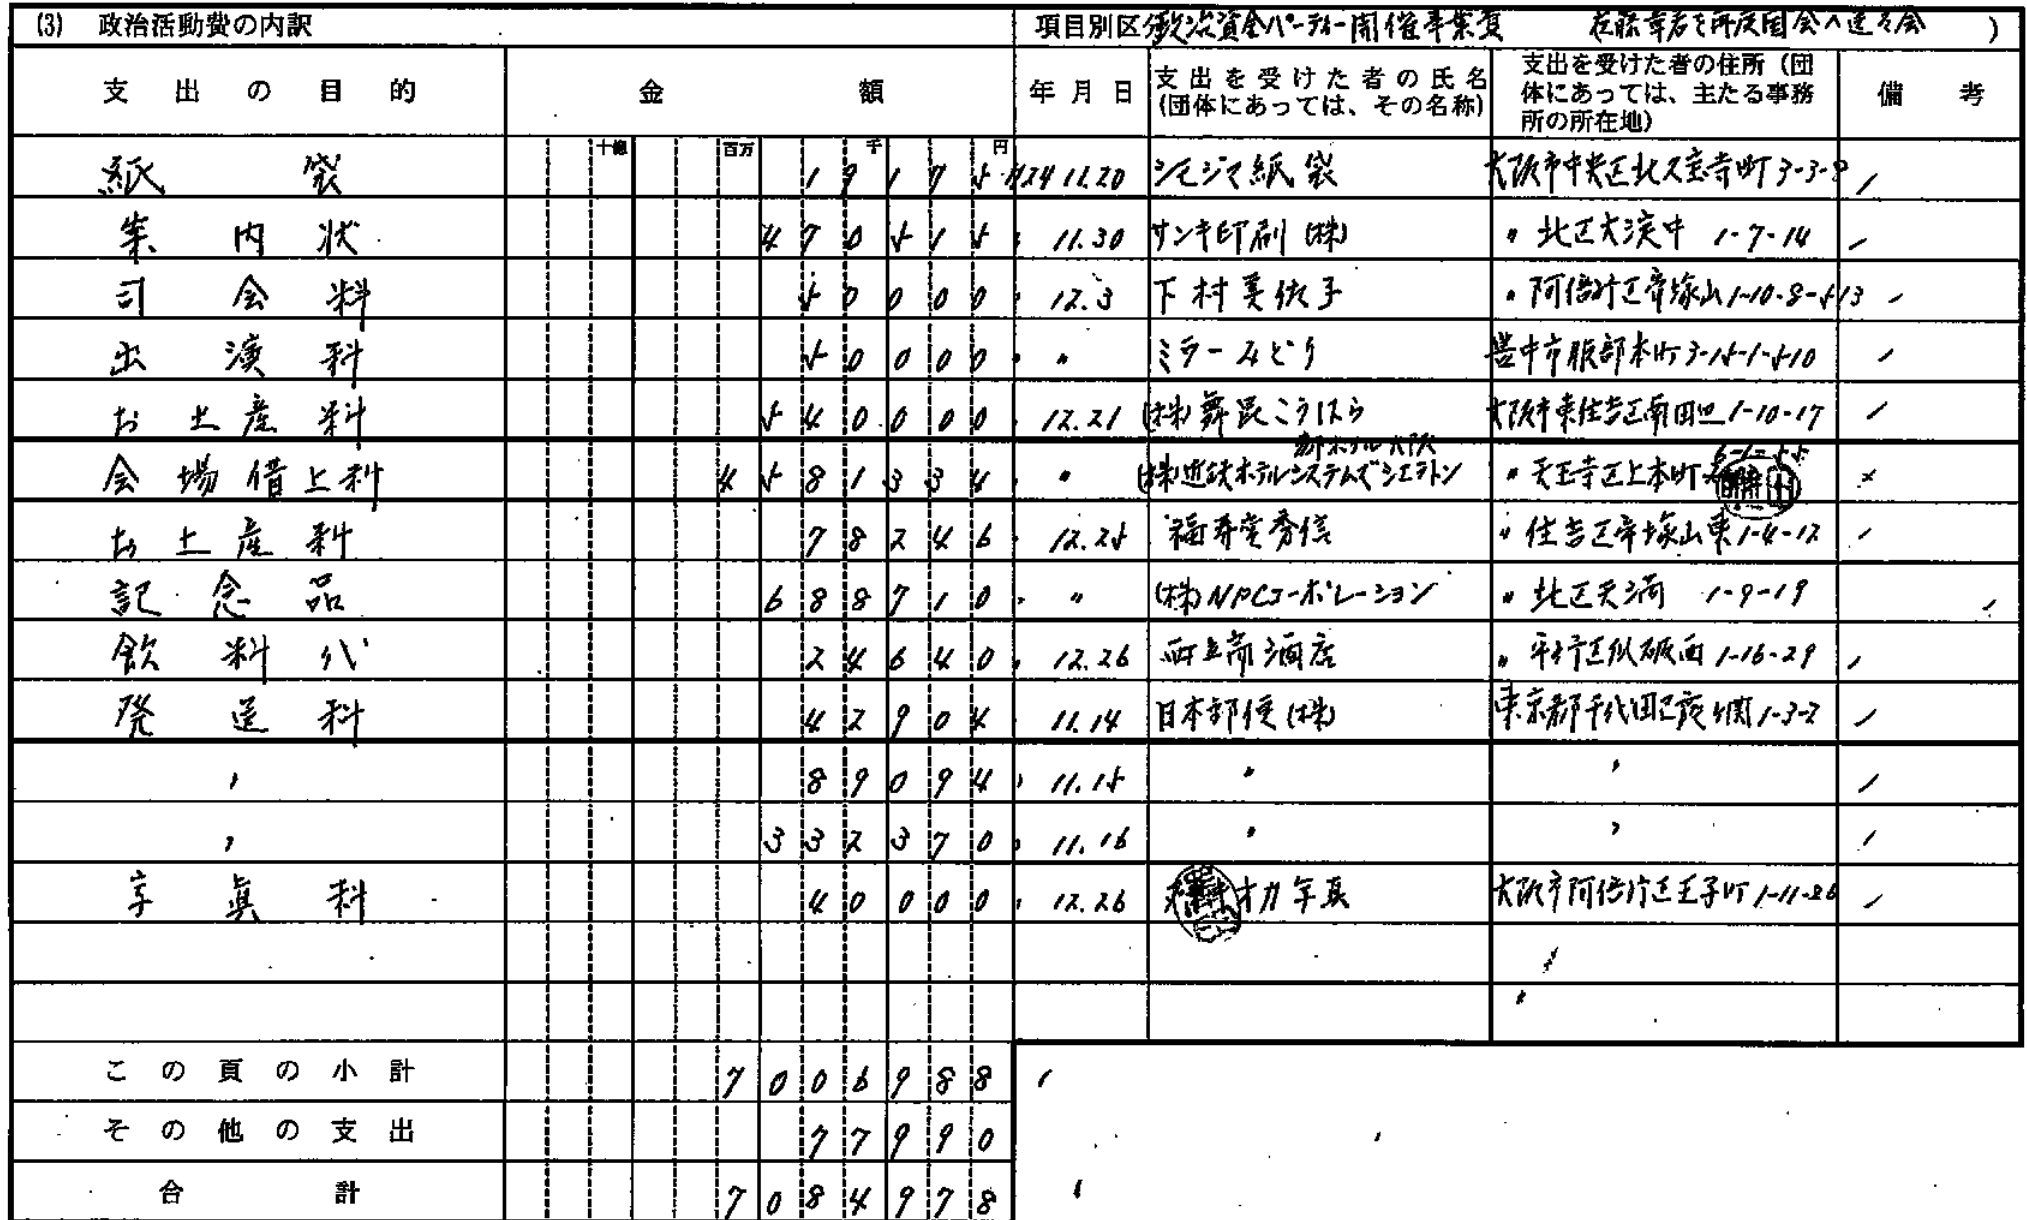 (3) 政治活動費の内訳 項目別区分 政治資金パーティー開催事業費 )
支出の目的 金額 年月日 支出を受けた者の氏名(団体にあっては、その名称) 支出を受けた者の住所(団体にあっては、主たる事務所の所在地) 備考
十億 百万 千 円
紙袋 19175 24 11.20 シモジマ紙袋 大阪市中央区北久宝寺町3-3-8
案内状 470515 11.30 サンキ印刷(株) 〃 北区大淀中 1-7-14
司会料 50000 12.3 下村美佐子 〃 阿倍野区帝塚山1-10-8-513
出演料 50000 〃 ミラーみどり 豊中市服部本町3-15-1-510
お土産料 540000 12.21 (株)舞昆こうはら 大阪市東住吉区南田辺1-10-17
会場借上料 4581334 〃 (株)近鉄ホテルシステムズ シェラトン都ホテル大阪 〃 天王寺区上本町6-1-55
お土産料 78246 12.25 福寿堂秀信 〃 住吉区帝塚山東1-4-12
記念品 688710 〃 (株)NPCコーポレーション 〃 北区天満 1-9-19
飲料代 24640 12.26 酒店 〃 平野区瓜破西1-16-29
発送料 42904 11.14 日本郵便(株) 東京都千代田区霞ヶ関1-3-2
〃 89094 11.15 〃 〃
〃 332370 11.16 〃 〃
写真料 40000 12.26 オカ写真 大阪市阿倍野区王子町1-11-26
この頁の小計 7006988
その他の支出 77990
合計 7084978